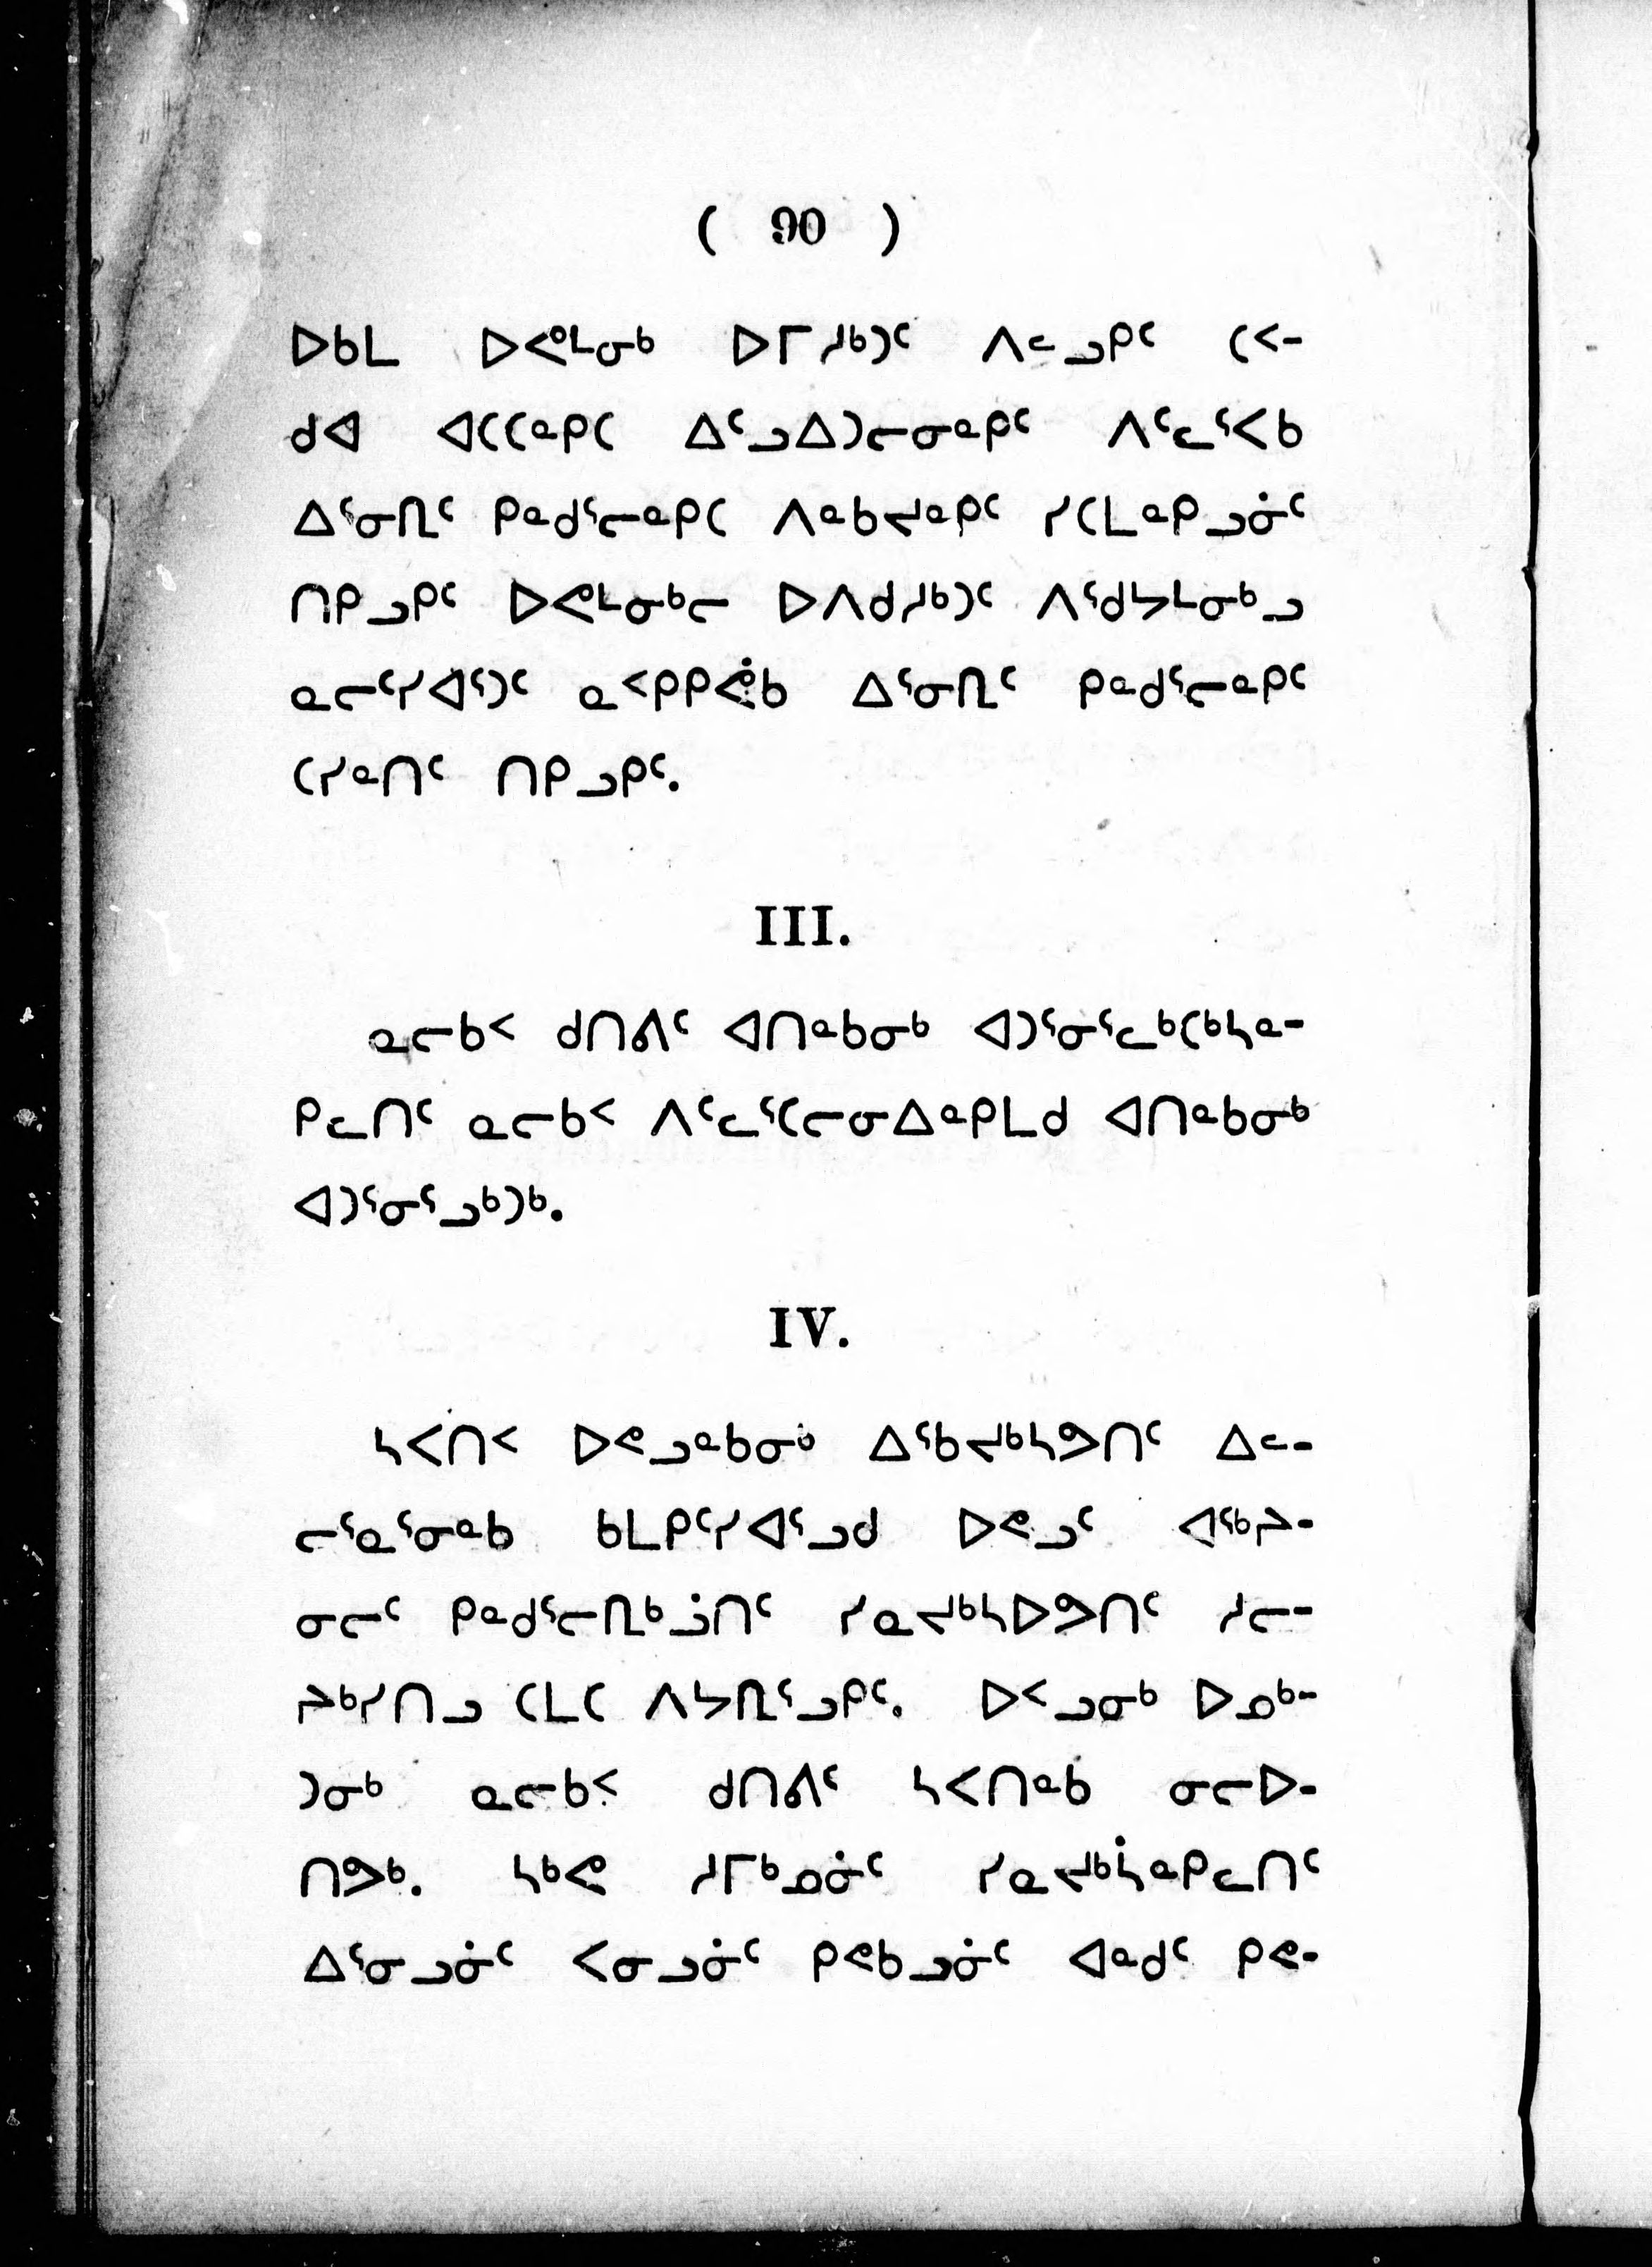 ( 90 )
ᐅᑲᒪ ᐅᕙᒻᓂᒃ ᐅᒥᓱᒃᑐᑦ ᐱᓪᓗᑭᑦ ᑕᑉ-
ᑯᐊ ᐊᑕᑕᓐᑭᑕ ᐃᑦᓗᐃᑐᓕᓂᓐᑭᑦ ᐱᑦᓚᕐᐸᑲ
ᐃᕐᓂᖏᑦ ᑭᓐᑯᕐᓕᓐᑭᑕ ᐱᓐᑲᔪᓐᑭᑦ ᓯᑕᒪᓐᑭᓗᓃᑦ
ᑎᑭᓗᑭᑦ ᐅᕙᒻᓂᒃᓕ ᐅᐱᑯᓱᒃᑐᑦ ᐱᕐᑯᔭᒻᓂᒃᓗ
ᓇᓕᑦᓯᐊᕐᑐᑦ ᓇᑉᑭᑭᕚᑲ ᐃᕐᓂᖏᑦ ᑭᓐᑯᕐᓕᓐᑭᑦ
ᑕᓯᓐᑎᑦ ᑎᑭᓗᑭᑦ.
III.
ᓇᓕᑲᑉ ᑯᑎᕕᑦ ᐊᑎᓐᑲᓂᒃ ᐊᑐᕐᓂᕐᓚᒃᑕᒃᓴᓐ-
ᑭᓚᑎᑦ ᓇᓕᑲᑉ ᐱᑦᓚᕐᑕᓕᓂᐃᓐᑭᒪᑯ ᐊᑎᓐᑲᓂᒃ
ᐊᑐᕐᓂᕐᓗᒃᑐᒃ.
IV.
ᓴᐸᑎᑉ ᐅᕝᓗᓐᑲᓂᒃ ᐃᕐᑲᔪᒃᓴᕗᑎᑦ ᐃᓪ-
ᓕᕐᓇᕐᓂᓐᑲ ᑲᒪᑭᑦᓯᐊᕐᓗᑯ ᐅᕝᓗᑦ ᐊᖅᔨ-
ᓂᓕᑦ ᑭᓐᑯᕐᓕᖏᒃᓘᑎᑦ ᓯᓇᔪᒃᓴᐅᕗᑎᑦ ᓱᓕ-
ᔨᒃᓯᑎᓗ ᑕᒪᑕ ᐱᔭᖏᕐᓗᑭᑦ. ᐅᑉᓗᓂᒃ ᐅᓄᒃ-
ᑐᓂᒃ ᓇᓕᑲᑉ ᑯᑎᕕᑦ ᓴᐸᑎᓐᑲ ᓂᓕᐅ-
ᑎᕗᒃ. ᓴᒃᕙ ᓱᒥᒃᓄᓃᑦ ᓯᓇᔪᒃᓵᓐᑭᓚᑎᑦ
ᐃᕐᓂᓗᓃᑦ ᐸᓂᓗᓃᑦ ᑭᕝᑲᓗᓃᑦ ᐊᓐᑯᑦ ᑭᕝ-